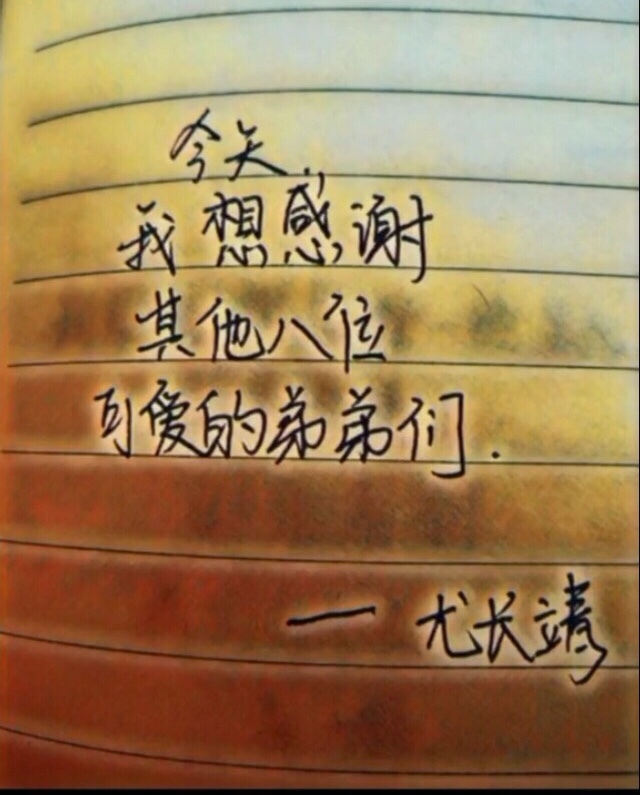 今天,
我想感谢
其他八位
可爱的弟弟们.
一 尤长靖